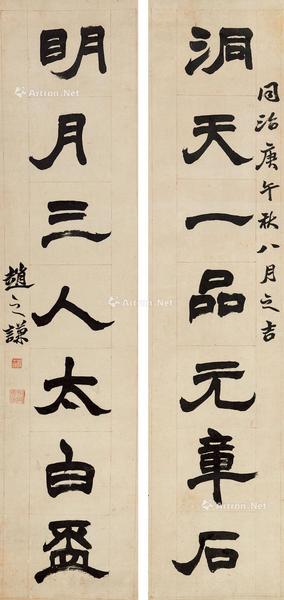 同治庚午秋八月之吉
洞天一品元章石
明月三人太白盃
趙之謙
Artron.Net
Artron.Net
Artron.Net
Artron.Net
Artron.Net